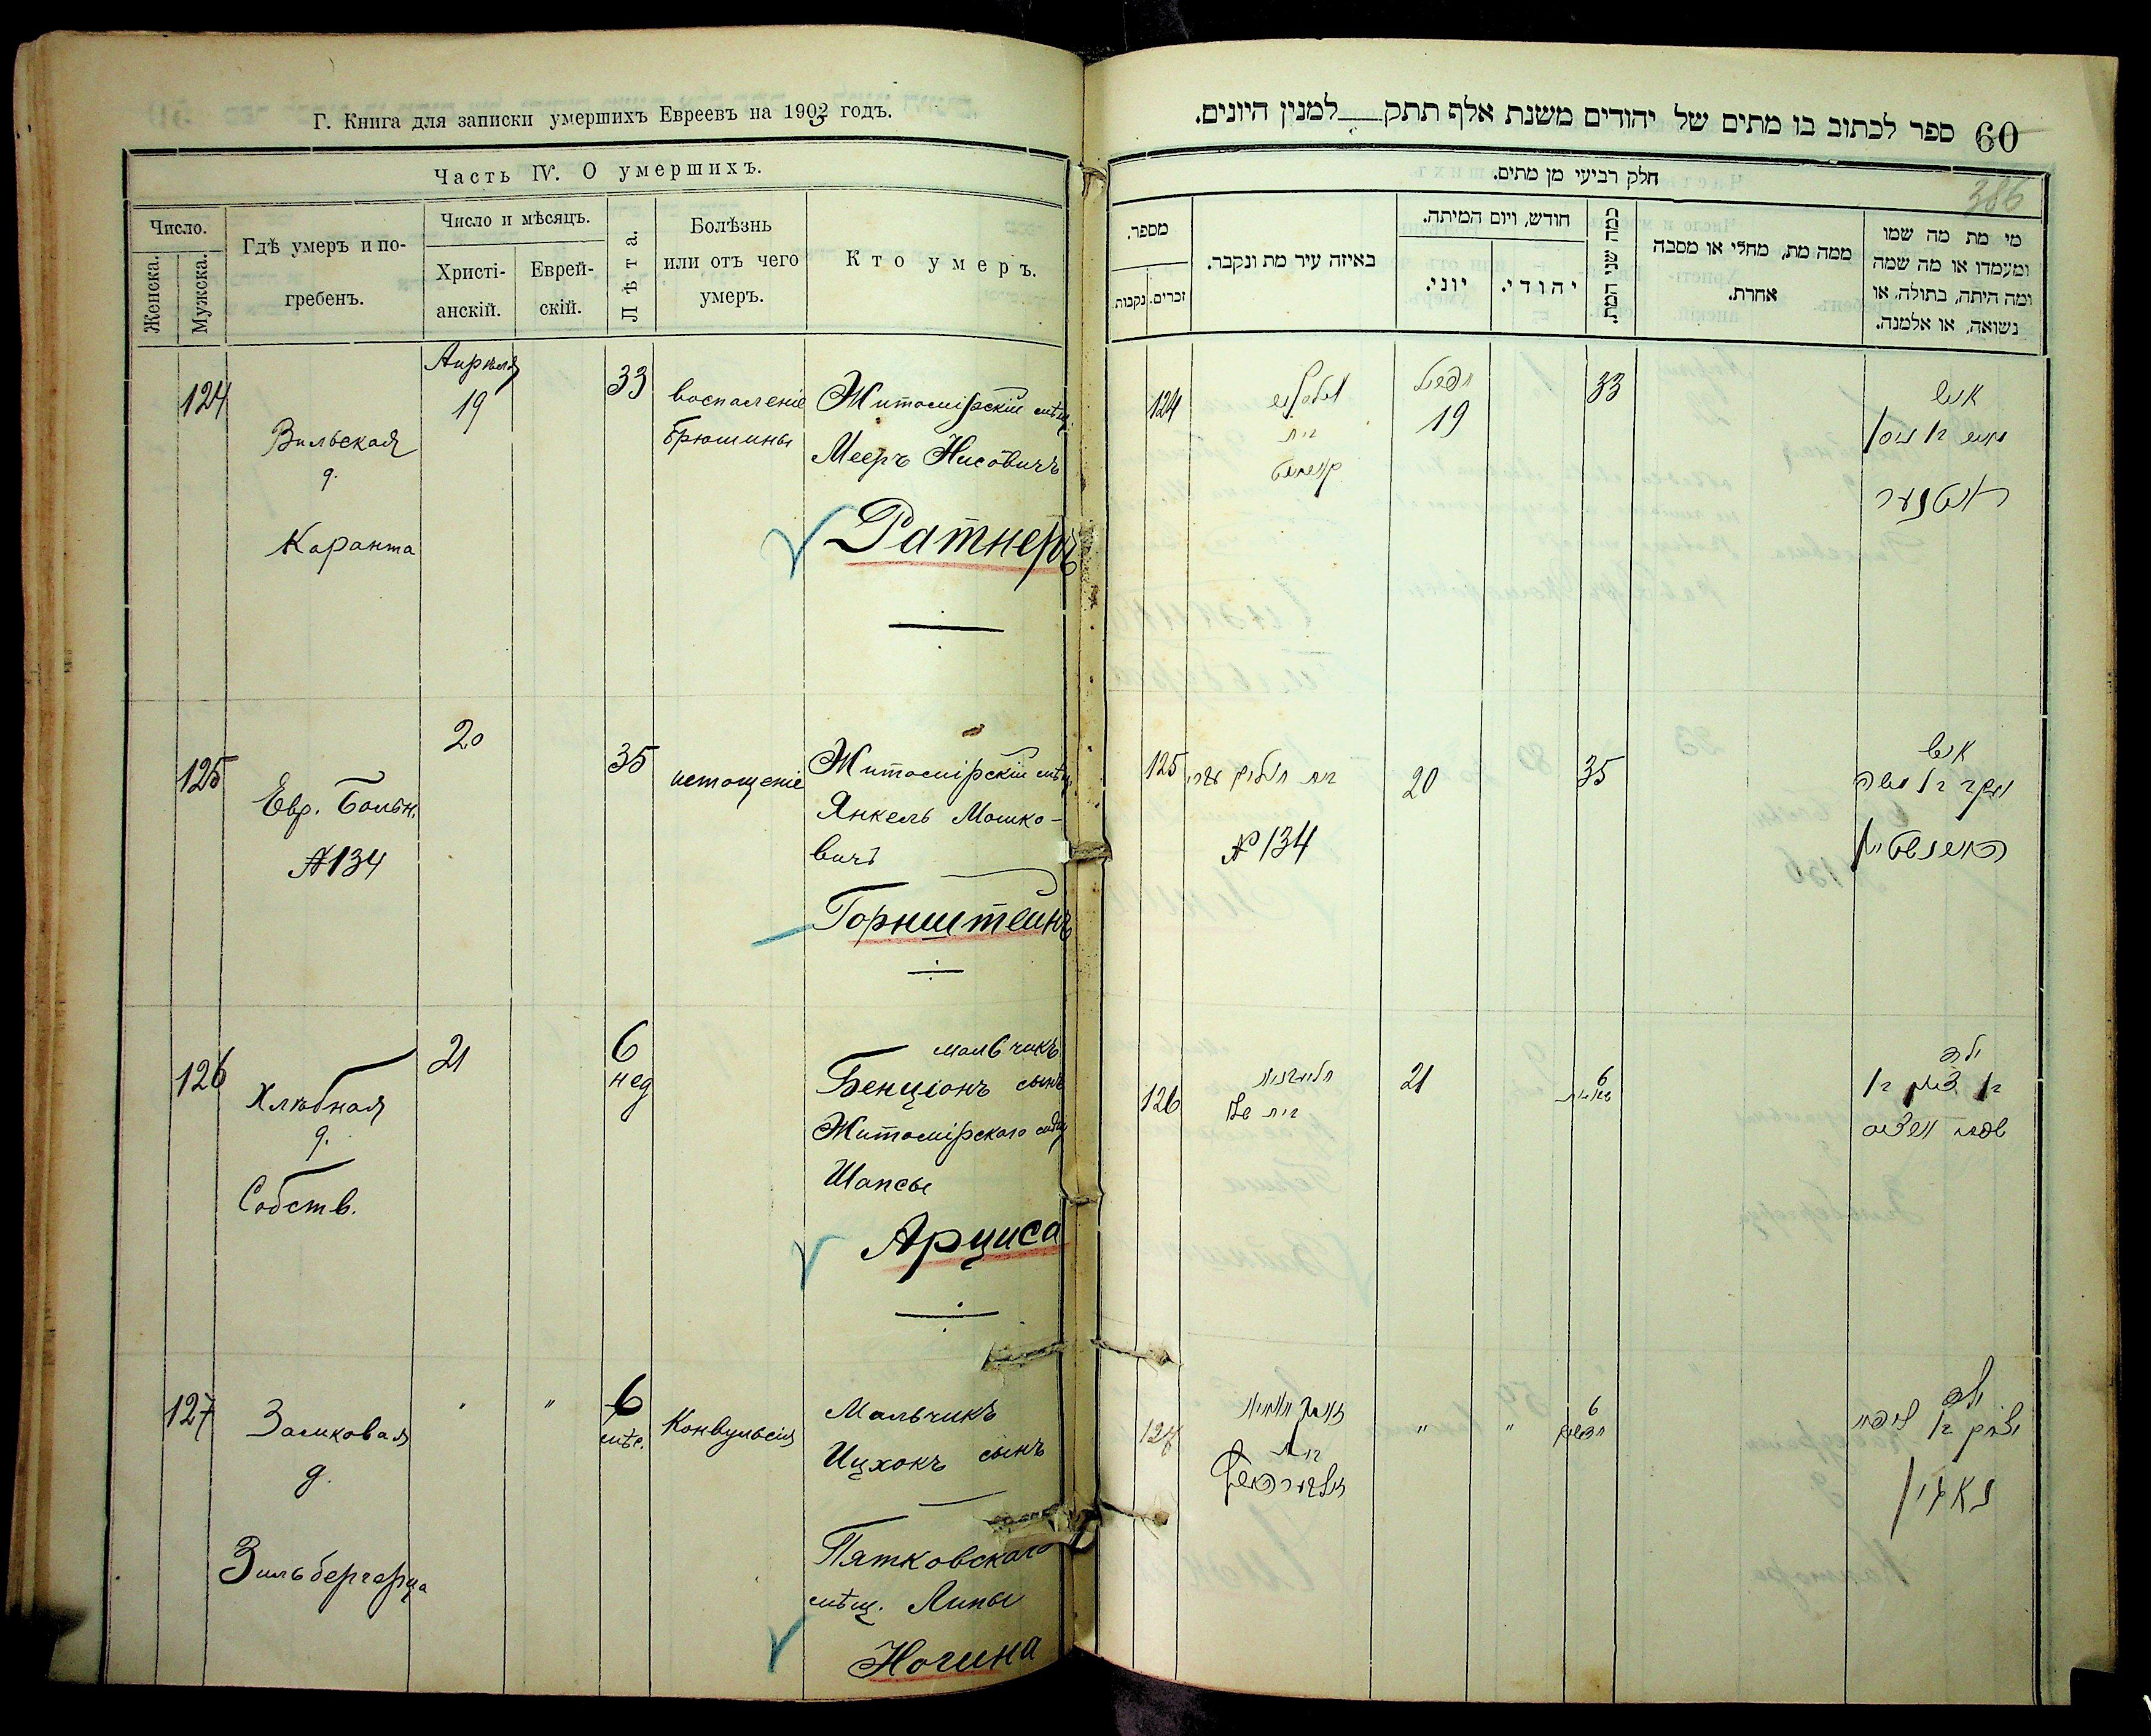 Г. Книга для записки умершихъ Евреевъ на 1903 годъ.
Часть IV. О умершихъ.
Число.
Женска.
Мужска.
Гдѣ умеръ и по-
гребенъ.
Число и мѣсяцъ.
Христі-
анскій.
Еврей-
скій.
Лѣта.
Болѣзнь
или отъ чего
умеръ.
Кто умеръ.
124
Вильская
д.
Каранта
Апрѣля
19
33
воспаленіе
брюшины
Житомірскій мѣщ
Мееръ Нисовичъ
Ратнеръ
125
Евр. Больн.
№134
20
35
истощеніе
Житомірскій мѣщ
Янкель Мошко-
вичъ
Горнштейнъ
126
Хлѣбная
д.
Собств.
21
6
нед
мальчикъ
Бенціонъ сынъ
Житомірскаго мѣщ
Шапсы
Арциса
127
Замковая
д.
Зильбергерца
"
"
6
мѣс.
Конвульсія
Мальчикъ
Ицхокъ сынъ
Пятковскаго
мѣщ. Липы
Ногина
60
ספר לכתוב בו מתים של יהודים משנת אלף תתק למנין היונים.
386
חלק רביעי מן מתים.
מי מת מה שמו
ומעמדו או מה שמה
ומה היתה, בתולה, או
נשואה, או אלמנה.
ממה מת, מחלי או מסבה
אחרת.
כמה שני המת.
חודש, ויום המיתה.
יהודי.
יוני.
באיזה עיר מת ונקבר.
מספר.
זכרים.
נקבות.
איש
מאיר בן ניסן
ראטנער
33
19
בית
124
איש
יעקב בן משה
35
20
№134
125
ילד
בן ציון בן
6
21
126
ילד
יצחק בן ליפא
נאגין
6
"
"
בית
127